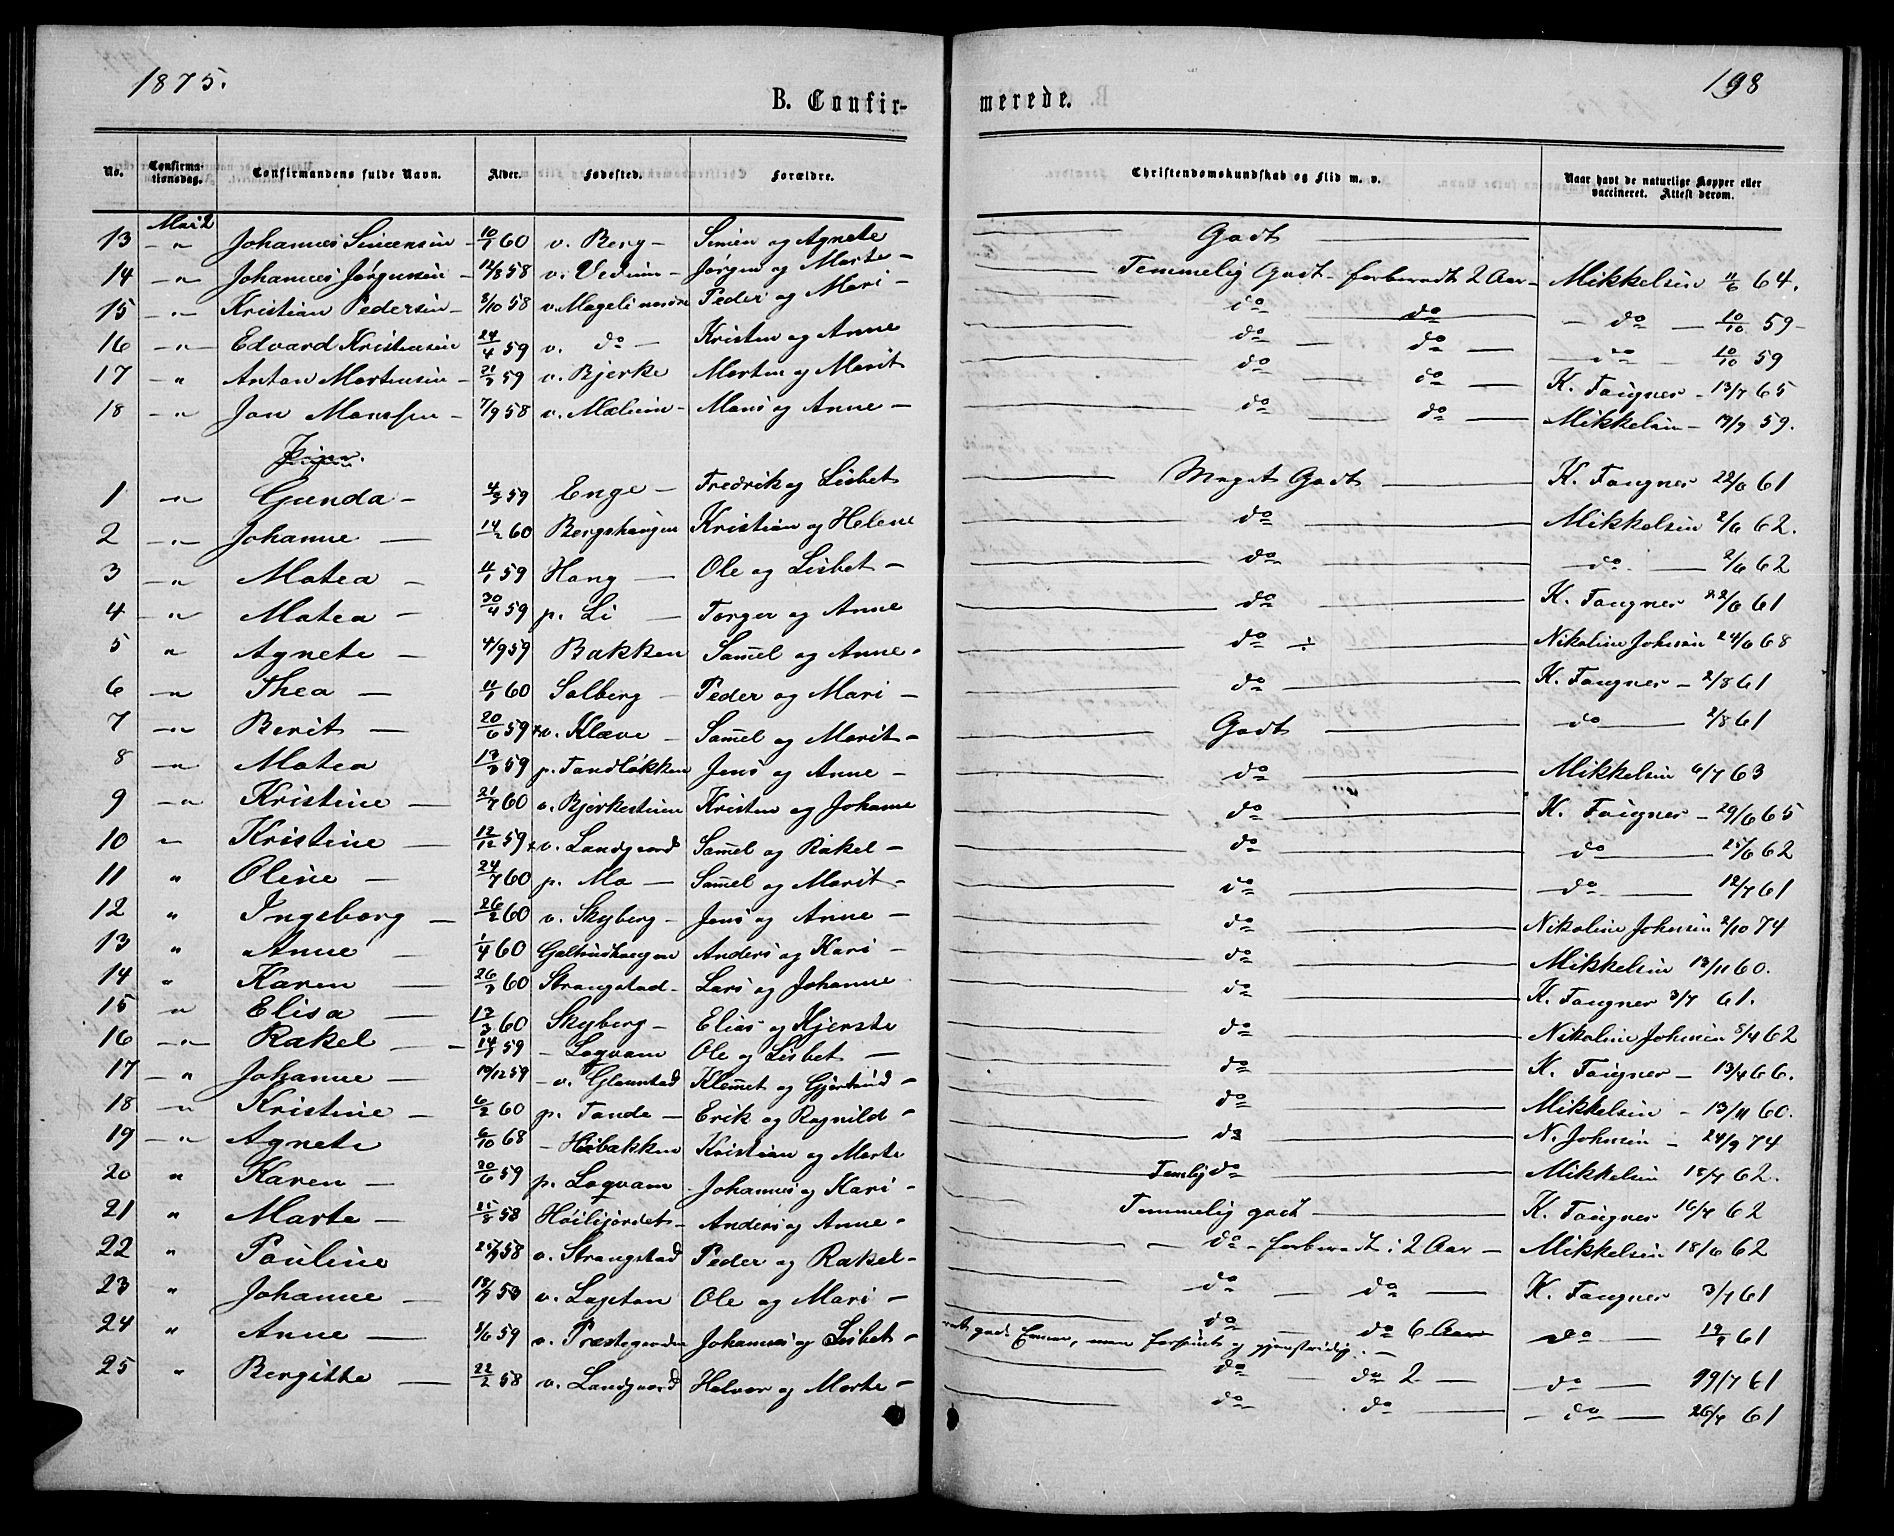 1875.
B. Confir-
merede.
198
No. Confirma-tionsdag. Confirmandens fulde Navn. Alder. Fødested. Forældre. Christendomskundskab og Flid m. v. Naar havt de naturlige Kopper eller vaccineret. Attest derom.
Mai 2
13 — " Johannes Simensen — 10/1 60 v. Berg — Simen og Agnete Godt
14 — " Johannes Jørgensen — 12/8 58 v. Vedum — Jørgen og Marte — Temmelig Godt — forberedt 2 Aar — Mikkelsen 11/6 64.
15 — " Kristian Pedersen — 8/10 58 v. Mageli nordre Peder og Mari — do do — do — 10/10 59 —
16 — " Edvard Kristensen 24/4 59 v. do — Kristen og Anne do — do — do — 10/10 59
17 — " Anton Mortensen — 21/3 59 v. Bjerke Morten og Marit do — do — K. Faugner — 13/7 65
18 — " Jon Monssen — 7/9 58 v. Mælum — Mons og Anne — do — do — Mikkelsen — 19/9 59.
Piger.
1 — " Gunda — 4/3 59 Enge — Fredrik og Lisbet Meget Godt K. Faugner 22/6 61
2 — " Johanne — 14/2 60 Bergshaugen Kristian og Helene do Mikkelsen 2/6 62.
3 — " Matea — 11/1 59 Haug — Ole og Lisbet — do do — 2/6 62
4 — " Matea — 30/4 59 p. Li — Torger og Anne do K. Faugner 22/6 61
5 " Agnete — 4/9 59 Bakken Samel og Anne — do ÷ Nikoline Johnsen 24/6 68
6 — " Thea — 11/1 60 Solberg — Peder og Mari — do K. Faugner — 2/8 61
7 — " Berit — 20/6 59 v. Kleve — Samel og Marit — Godt do — 2/8 61
8 — " Matea 13/3 59 p. Tandløkken Jens og Anne — do Mikkelsen 6/7 63
9 — " Kristine — 21/7 60 v. Bjerkestuen Kristen og Johanne do K. Faugner — 29/6 65
10 — Kristine — 12/12 59 v. Landgaard Samel og Rakel — do do — 25/6 62
11 " Oline — 24/7 60 p. Mo — Samel og Marit — do do — 12/7 61
12 " Ingeborg — 26/2 60 v. Skyberg — Jens og Anne — do Nikoline Johnsen 2/10 74
13 " Anne — 1/4 60 Anders og Kari — do Mikkelsen 13/11 60.
14 " Karen — 26/3 60 Strangstad — Lars og Johanne do K. Faugner 3/7 61.
15 " Elisa — 13/3 60 Skyberg — Elias og Kjerste do Nikoline Johnsen 5/4 62
16 — " Rakel — 14/7 59 — Loqvam Ole og Lisbet — do K. Faugner — 13/4 66.
17 — " Johanne — 19/12 59 — v. Glomstad Klemet og Gjertrud — do Mikkelsen — 13/11 60.
18 — " Kristine — 6/2 60 p. Tande — Erik og Ragnild — do N. Johnsen — 24/9 74
19 — " Agnete 6/10 68 — Høibakken Kristian og Marte Temlig do Mikkelsen 18/7 62.
20 " Karen — 20/6 59 p. Loqvam Johannes og Kari — Temmelig godt K. Faugner 16/7 62
21 " Marte — 15/8 58 Høilijordet — Anders og Anne — do — forberedt i 2 Aar — Mikkelsen 18/6 62
22 " Pauline 25/7 58 v. Strangstad Peder og Rakel — do — do — K. Faugner 3/7 61
23 " Johanne — 18/7 58 v. Lagetan Ole og Mari — do — do 6 Aar do — 19/7 61
24 " Anne — 8/6 59 v. Præstegaarden Johannes og Lisbet — gode Evner, men forsømt og gjenstridig. —
25 " Bergitte — 22/2 58 v. Landgaard Halvor og Marte — do — do 2 — do — 19/7 61
do . do — do — 26/7 61